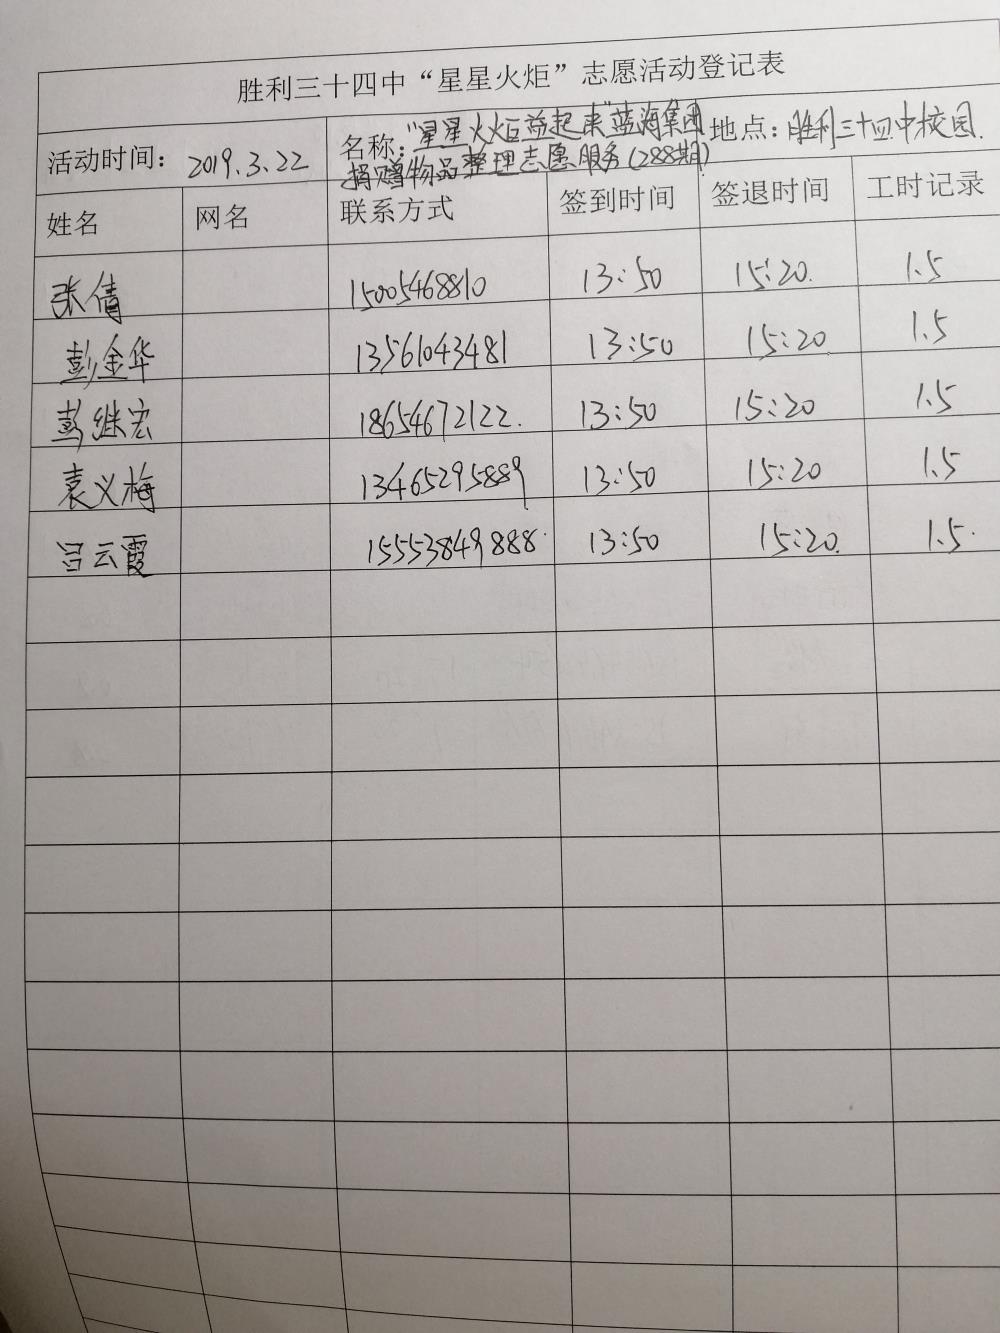 胜利三十四中“星星火炬”志愿活动登记表
活动时间：2019.3.22 名称：“星星火炬益起来”蓝海集团捐赠物品整理志愿服务（288期） 地点：胜利三十四中校园
姓名 网名 联系方式 签到时间 签退时间 工时记录
张倩 15005468810 13:50 15:20 1.5
彭金华 13561043481 13:50 15:20 1.5
继宏 18654672122 13:50 15:20 1.5
袁义梅 13465295889 13:50 15:20 1.5
吕云霞 15553849888 13:50 15:20 1.5